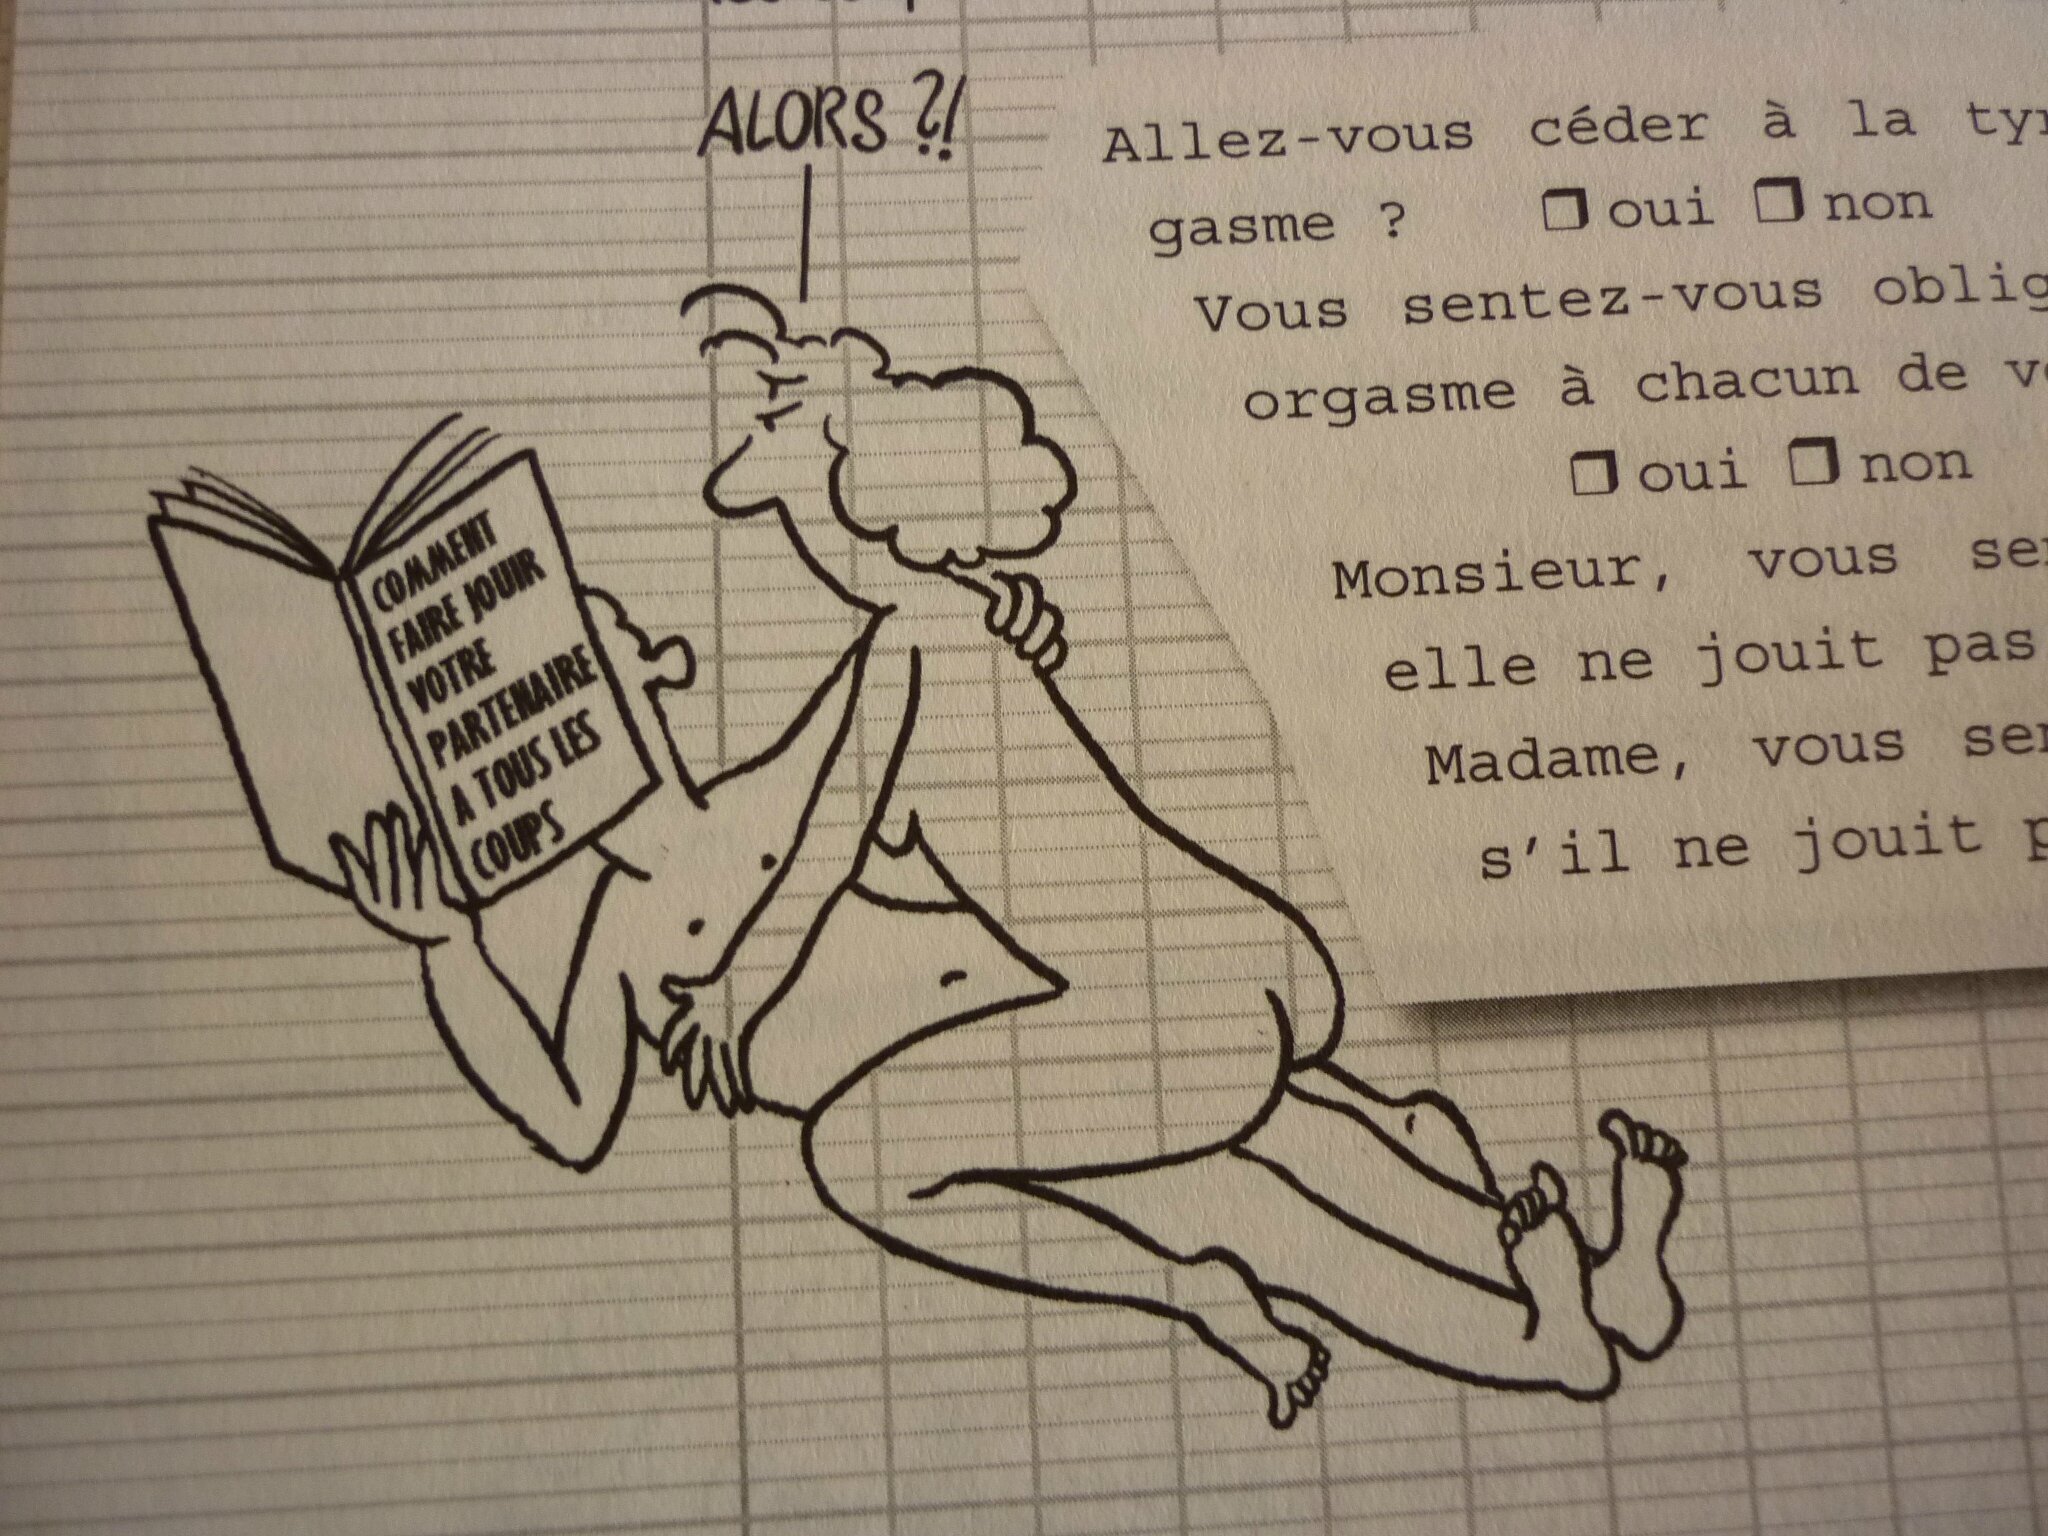 ALORS ?!
COMMENT
FAIRE JOUIR
VOTRE
PARTENAIRE
A TOUS LES
COUPS
Allez-vous céder à la
gasme ? ❒ oui ❒ non
Vous sentez-vous
orgasme à chacun de
❒ oui ❒ non
Monsieur, vous
elle ne jouit pas
Madame, vous
s'il ne jouit